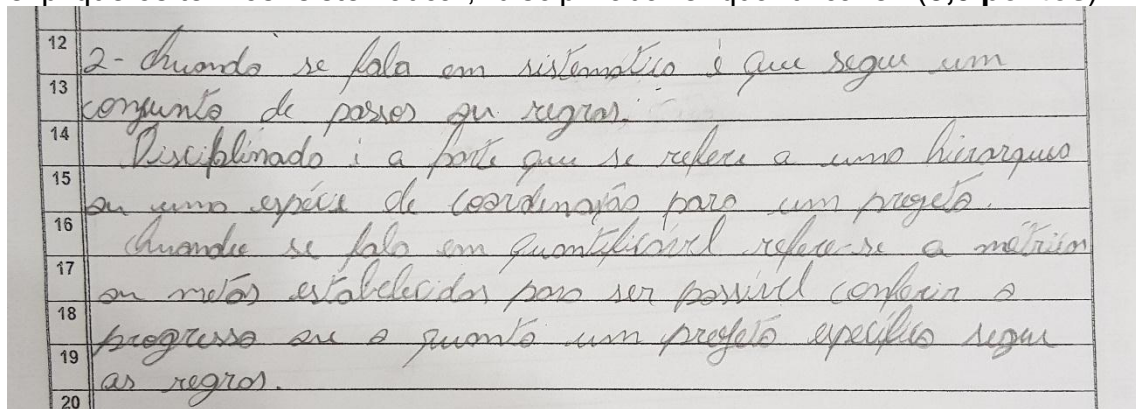 12 2- Quando se fala em sistemático é que segue um
13 conjunto de passos ou regras.
14 Disciplinado é a parte que se refere a uma hierarquia
15 ou uma espécie de coordenação para um projeto.
16 Quando se fala em quantificável refere-se a métricas
17 ou metas estabelecidas para ser possível conferir o
18 progresso ou o quanto um projeto específico segue
19 as regras.
20